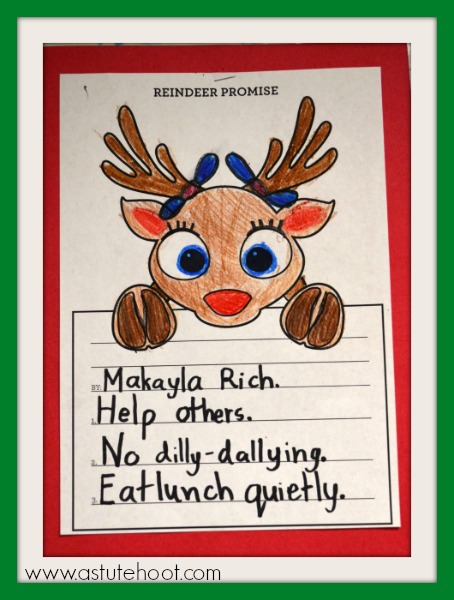 REINDEER PROMISE
BY: Makayla Rich.
1. Help others.
2. No dilly-dallying.
3. Eat lunch quietly.
www.astutehoot.com